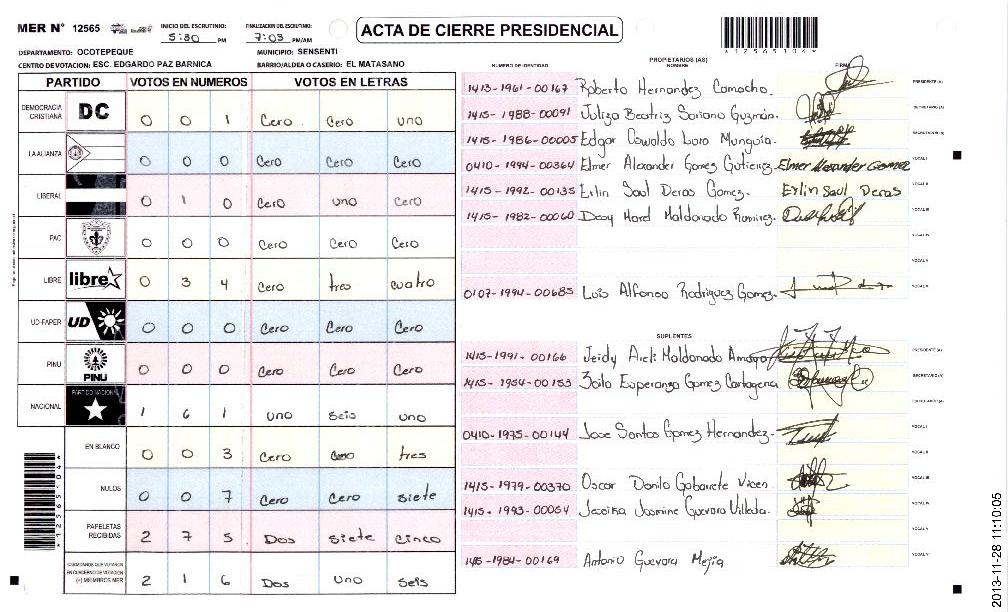 MER N° 12565
INICIO DEL ESCRUTINIO: 5:30 PM
FINALIZACION DEL ESCRUTINIO: 7:03 PM/AM
ACTA DE CIERRE PRESIDENCIAL
*12565104*
DEPARTAMENTO: OCOTEPEQUE
MUNICIPIO: SENSENTI
CENTRO DE VOTACION: ESC. EDGARDO PAZ BARNICA
BARRIO/ALDEA O CASERIO: EL MATASANO
PARTIDO VOTOS EN NUMEROS VOTOS EN LETRAS
DEMOCRACIA CRISTIANA DC 0 0 1 Cero Cero uno
LA ALIANZA 0 0 0 Cero Cero Cero
LIBERAL 0 1 0 Cero uno cero
PAC 0 0 0 Cero Cero Cero
LIBRE libre 0 3 4 Cero tres cuatro
UD-FAPER UD 0 0 0 Cero Cero Cero
PINU PINU 0 0 0 Cero Cero Cero
NACIONAL PARTIDO NACIONAL 1 6 1 uno seis uno
EN BLANCO 0 0 3 Cero Cero tres
NULOS 0 0 7 Cero Cero siete
PAPELETAS RECIBIDAS 2 7 5 Dos siete cinco
CIUDADANOS QUE VOTARON EN CUADERNO DE VOTACION (+) MIEMBROS MER 2 1 6 Dos Uno seis
PROPIETARIOS (AS)
NUMERO DE IDENTIDAD NOMBRE FIRMA
1413-1961-00167 Roberto Hernandez Camocho. PRESIDENTE (A)
1415-1988-00091 Juliza Beatriz Soriano Guzmán. SECRETARIO (A)
1415-1986-00005 Edgar Oswaldo Lara Munguía. ESCRUTADOR (A)
0410-1994-00364 Elmer Alexander Gomez Gutierrez Elmer Alexander Gomez VOCAL I
1415-1992-00135 Erlin Saul Deras Gomez. Erlin Saul Deras VOCAL II
1415-1982-00060 Deny Marel Maldonado Ramirez. VOCAL III
VOCAL IV
VOCAL V
0107-1994-00685 Luis Alfonso Rodriguez Gomez.
SUPLENTES
1415-1991-00166 Jeidy Arely Maldonado Amaya PRESIDENTE (A)
1415-1954-00153 Zoila Esperanza Gomez Cartagena SECRETARIO (A)
ESCRUTADOR (A)
0410-1975-00144 Jose Santos Gomez Hernandez. VOCAL I
VOCAL II
1415-1979-00370 Oscar Danilo Gabarrete VOCAL III
1415-1993-00064 Jessika Jasmine Guevara Villeda. VOCAL IV
VOCAL V
1415-1984-00169 Antonio Guevara Mejia
*12565104*
2013-11-28 11:10:05